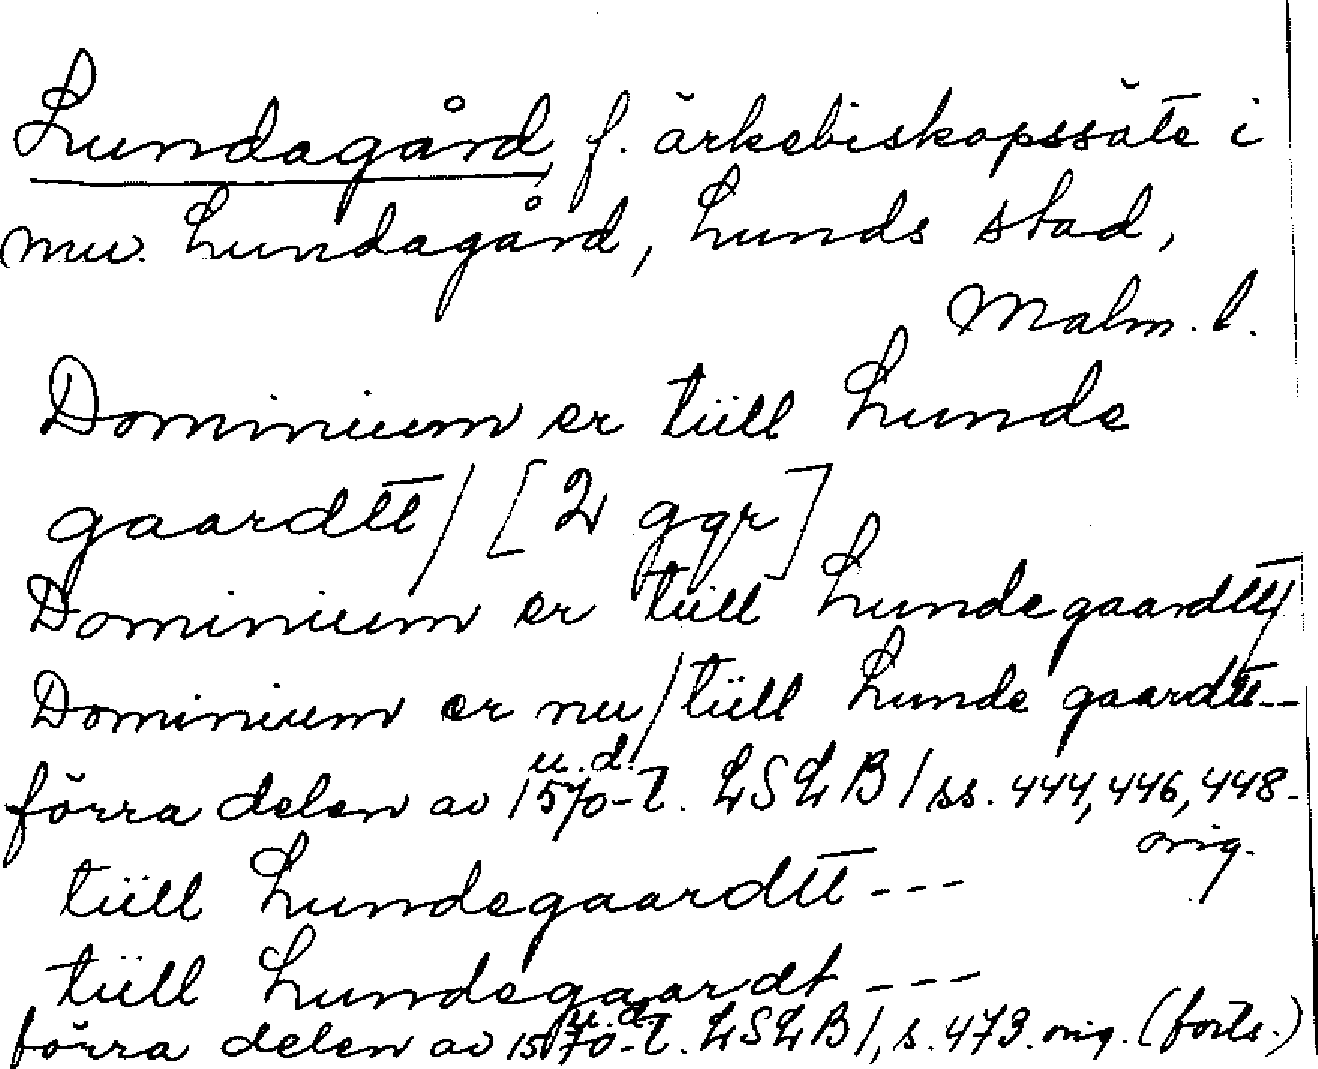 Lundagård, f. ärkebiskopssäte i
nuv. Lundagård, Lunds stad,
Malm. l.
Dominium er tiill Lunde
gaardtt/ [2 ggr]
Dominium er tiill Lundegaardtt/
Dominium er nu/tiill Lunde gaardtt--
u.d.
förra delen av 1570-t. LSLB 1 ss. 444, 446, 448.
orig.
tiill Lundegaardtt---
tiill Lundegaardt---
u.d.
förra delen av 1570-t. LSLB 1, s. 473. orig. (forts.)